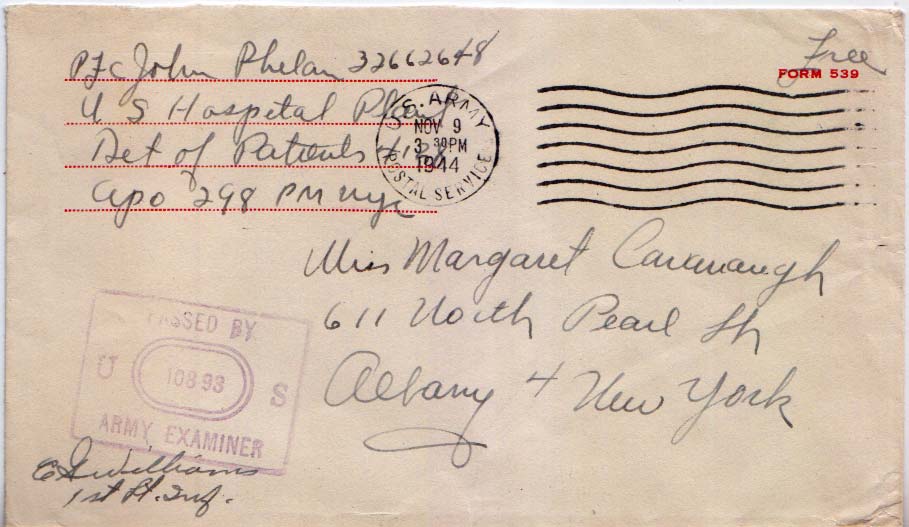 Pfc John Phelan 32662648
Free
FORM 539
U S Hospital Plant
Det of Patients
apo 298 PM nyc
U.S. ARMY
NOV 9
3 30 PM
1944
POSTAL SERVICE
Miss Margaret Cavanaugh
611 North Pearl St
Albany 4 New York
PASSED BY
U 10893 S
ARMY EXAMINER
Williams
1st Lt. Inf.